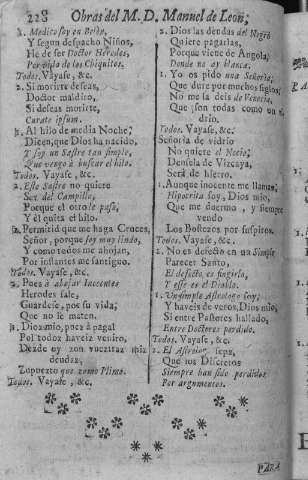 228 Obras del M. D. Manuel de Leon,
1. Medico soy en Belen,
Y segun despacho Niños,
He de ser Doctor Herodes,
Por vida de los Chiquitos.
Todos. Vayase, &c.
2. Si morirte deseas,
Doctor maldito,
Si deseas morirte,
Curate ipsum.
1. Al hilo de media Noche,
Dicen, que Dios ha nacido,
Y soy un Sastre tan simple,
Que vengo à buscar el hilo.
Todos. Vayase, &c.
2. Este Sastre no quiere
Ser del Campillo,
Porque el otro le pasa,
Y èl quita el hilo.
1. Permitid que me haga Cruces,
Señor, porque soy muy lindo,
Y como todos me ahojan,
Por instantes me santiguo.
Todos. Vayase, &c.
2. Pues à ahajar Inocentes
Herodes sale,
Guardese, por su vida;
Que no se maten.
1. Dios mio, pues à pagar
Por todos haveis venido,
Desde oy son vuestras mis
deudas,
Supuesto que como Primo.
Todos. Vayase, &c.
2. Dios las deudas del Negro
Quiere pagarlas,
Porque viene de Angola,
Donde no ay blanca.
1. Yo os pido una Señoria,
Que dure por muchos siglos,
No me la deis de Venecia,
Que son todas como un
drio.
Todos. Vayase, &c.
Señoria de vidrio
No quiere el Necio;
Densela de Vizcaya,
Serà de hierro.
1. Aunque inocente me llaman,
Hipocrita soy, Dios mio,
Que me duermo, y siempre
vendo
Los Bostezos por suspiros.
Todos. Vayase, &c.
2. No es defecto en un Simple
Parecer Santo,
El defecto es fingirlo,
Y esse es el Diablo.
1. Un simple Astrologo soy;
Y haveis de veros, Dios mio,
Si entre Pastores hallado,
Entre Doctores perdido.
Todos. Vayase, &c.
2. El Astrologo sepa,
Que los Discretos
Siempre han sido perdidos
Por argumentos.
PARA